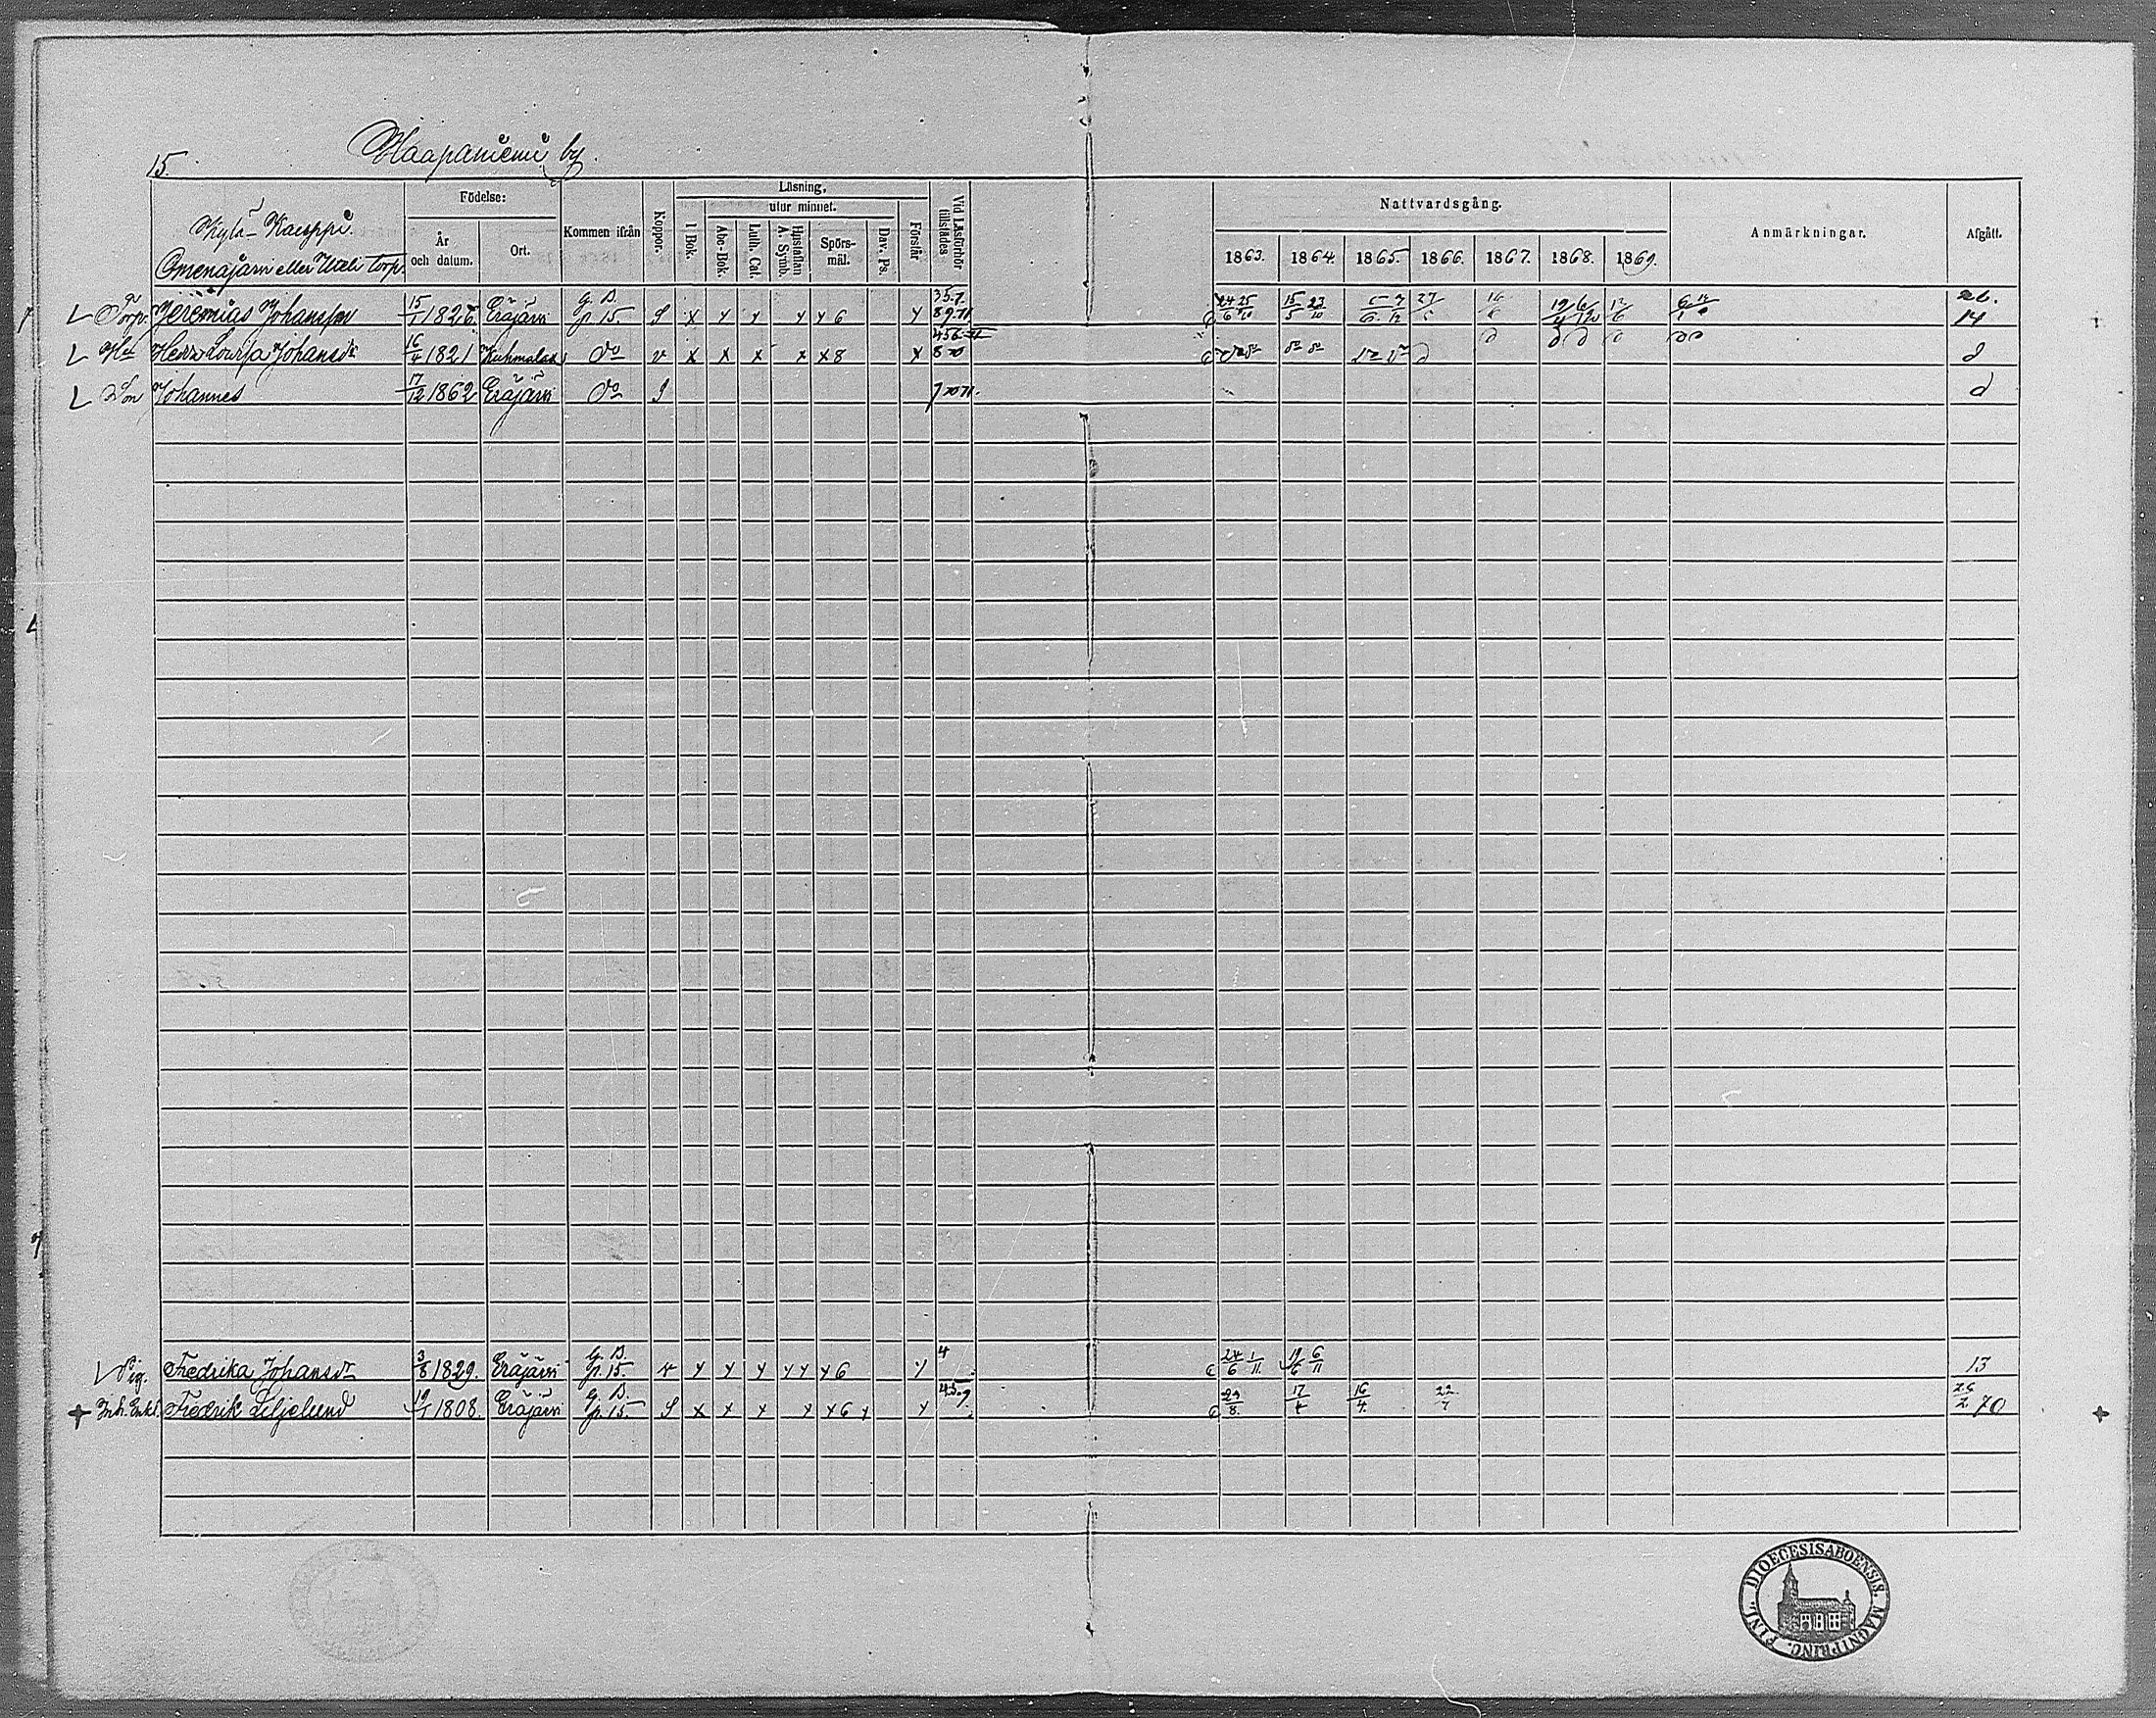 15.
Haapaniemi by.
Kylä-Kaeyppi.
Omenajärvi eller Uteli torp.
Födelse:
År och datum.
Ort.
Kommen ifrån
Koppor.
Läsning,
utur minnet.
I Bok.
Abc-Bok.
Luth. Cat.
Hustaflan A. Symb.
Spörsmål.
Dav. Ps.
Förstår
Vid Läsförhör tillstädes
Nattvardsgång.
1863. 1864. 1865. 1866. 1867. 1868. 1869.
Anmärkningar.
Afgått.
Torp. Jeremias Johansson 15/1 1826 Eräjärvi G. B. p. 15. S x y y y y 6 y 35.7. 89.71 24/6 25/10 15/5 23/10 26. 14
Hu Hedda Lovisa Johansdr 16/4 1821 Kuhmalax do v x x x x x 8 x 456 870 d
Son Johannes 17/12 1862 Eräjärvi do S 7 70 71. d
Pig. Fredrika Johansdr 3/8 1829. Eräjärvi G. B. p. 15. v y y y y y y 6 y 4 24/6 1/11 19/6 6/11 13
Inh. Enkl. Fredrik Liljelund 19/1 1808. Eräjärvi G. B. p. 15. S x y y y y 6 y y 45.9 29/8. 17/4 16/4. 22/7 26/2 70
FINL. DIOECESIS ABOENSIS. MAGNI PRINC.